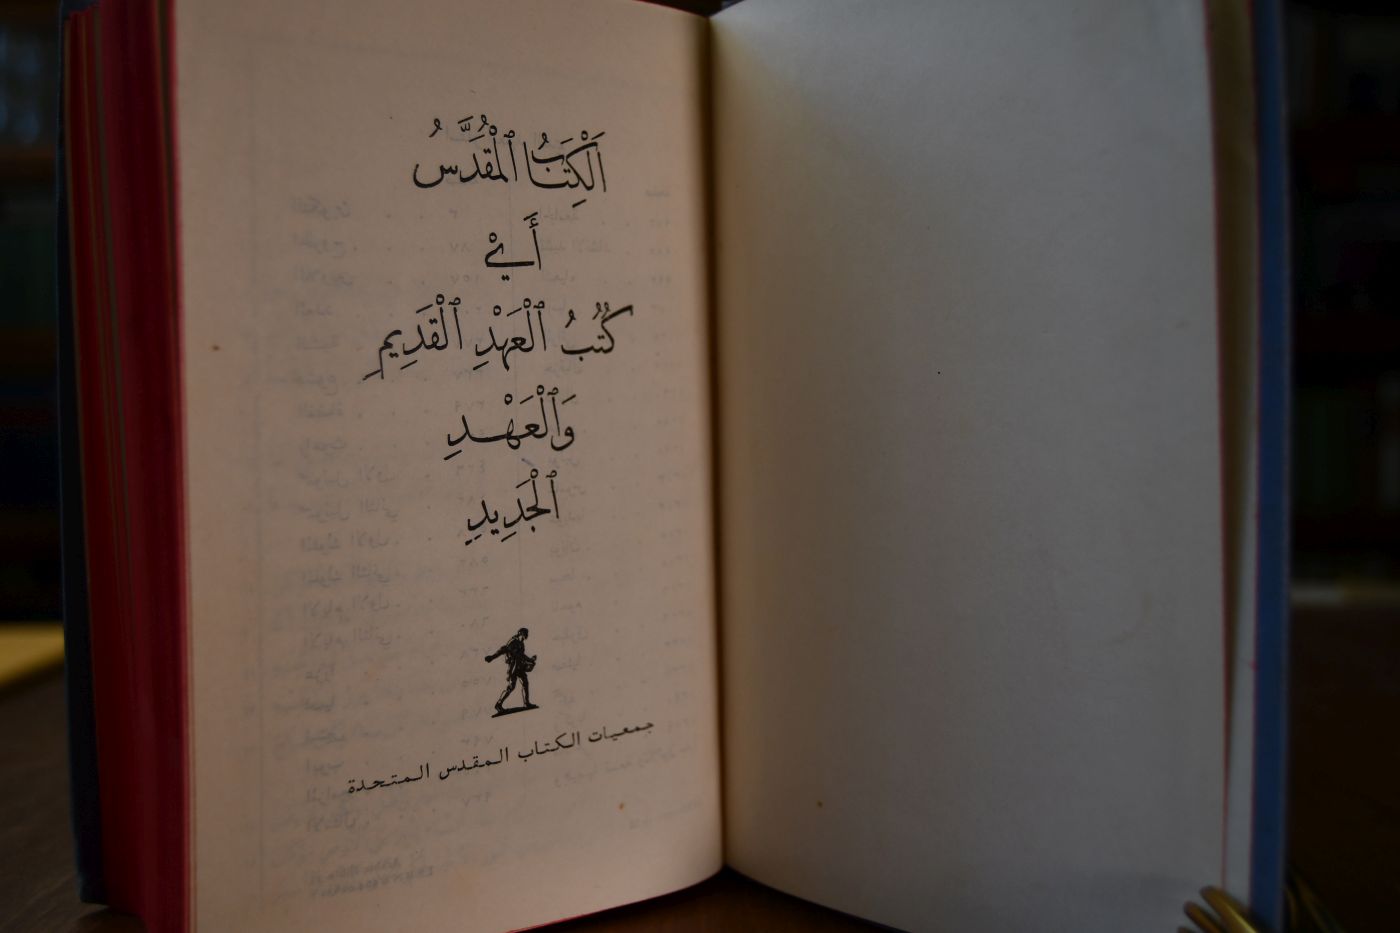 اَلْكِتَابُ ٱلْمُقَدَّسُ
أَيْ
كُتُبُ ٱلْعَهْدِ ٱلْقَدِيمِ
وَٱلْعَهْدِ
ٱلْجَدِيدِ
جمعيات الكتاب المقدس المتحدة